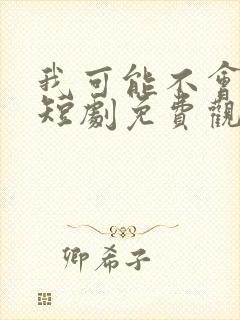 我可能不會
短劇免費觀
卿希子